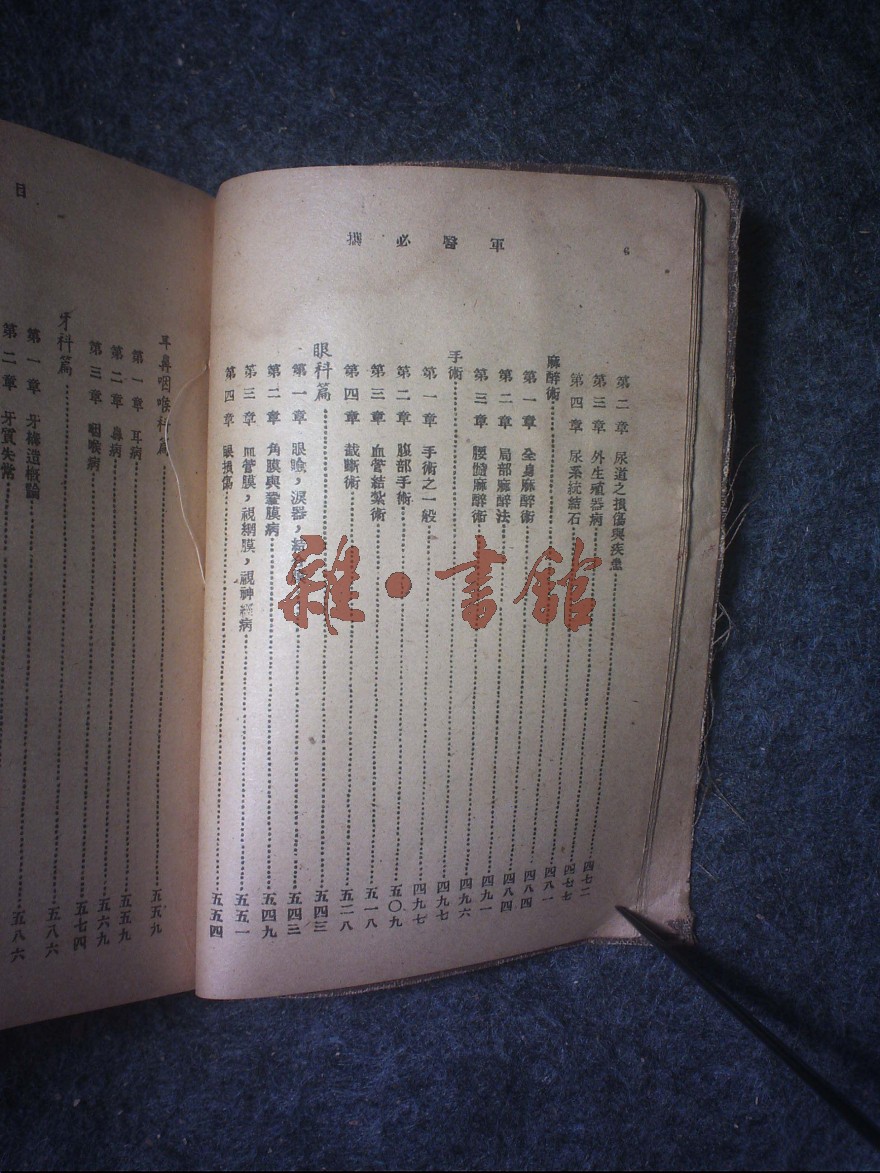 6
軍醫必攜
第二章 尿道之損傷與疾患………四七二
第三章 外生殖器病………四七七
第四章 尿系統結石………四八一
麻醉術………四八四
第一章 全身麻醉術………四八四
第二章 局部麻醉法………四九一
第三章 腰髓麻醉術………四九六
手術………四九七
第一章 手術之一般………四九七
第二章 腹部手術………五〇九
第三章 血管結紮術………五一八
第四章 截斷術………五二八
眼科篇………五四三
第一章 眼瞼,淚器,………五四三
第二章 角膜與鞏膜病………五四九
第三章 血管膜,視網膜,視神經病………五五一
第四章 眼損傷………五五四
目
耳鼻咽喉科篇………五五九
第一章 耳病………五五九
第二章 鼻病………五六九
第三章 咽喉病………五七四
牙科篇………五八六
第一章 牙構造概論………五八六
第二章 牙質失常………
雜·書館